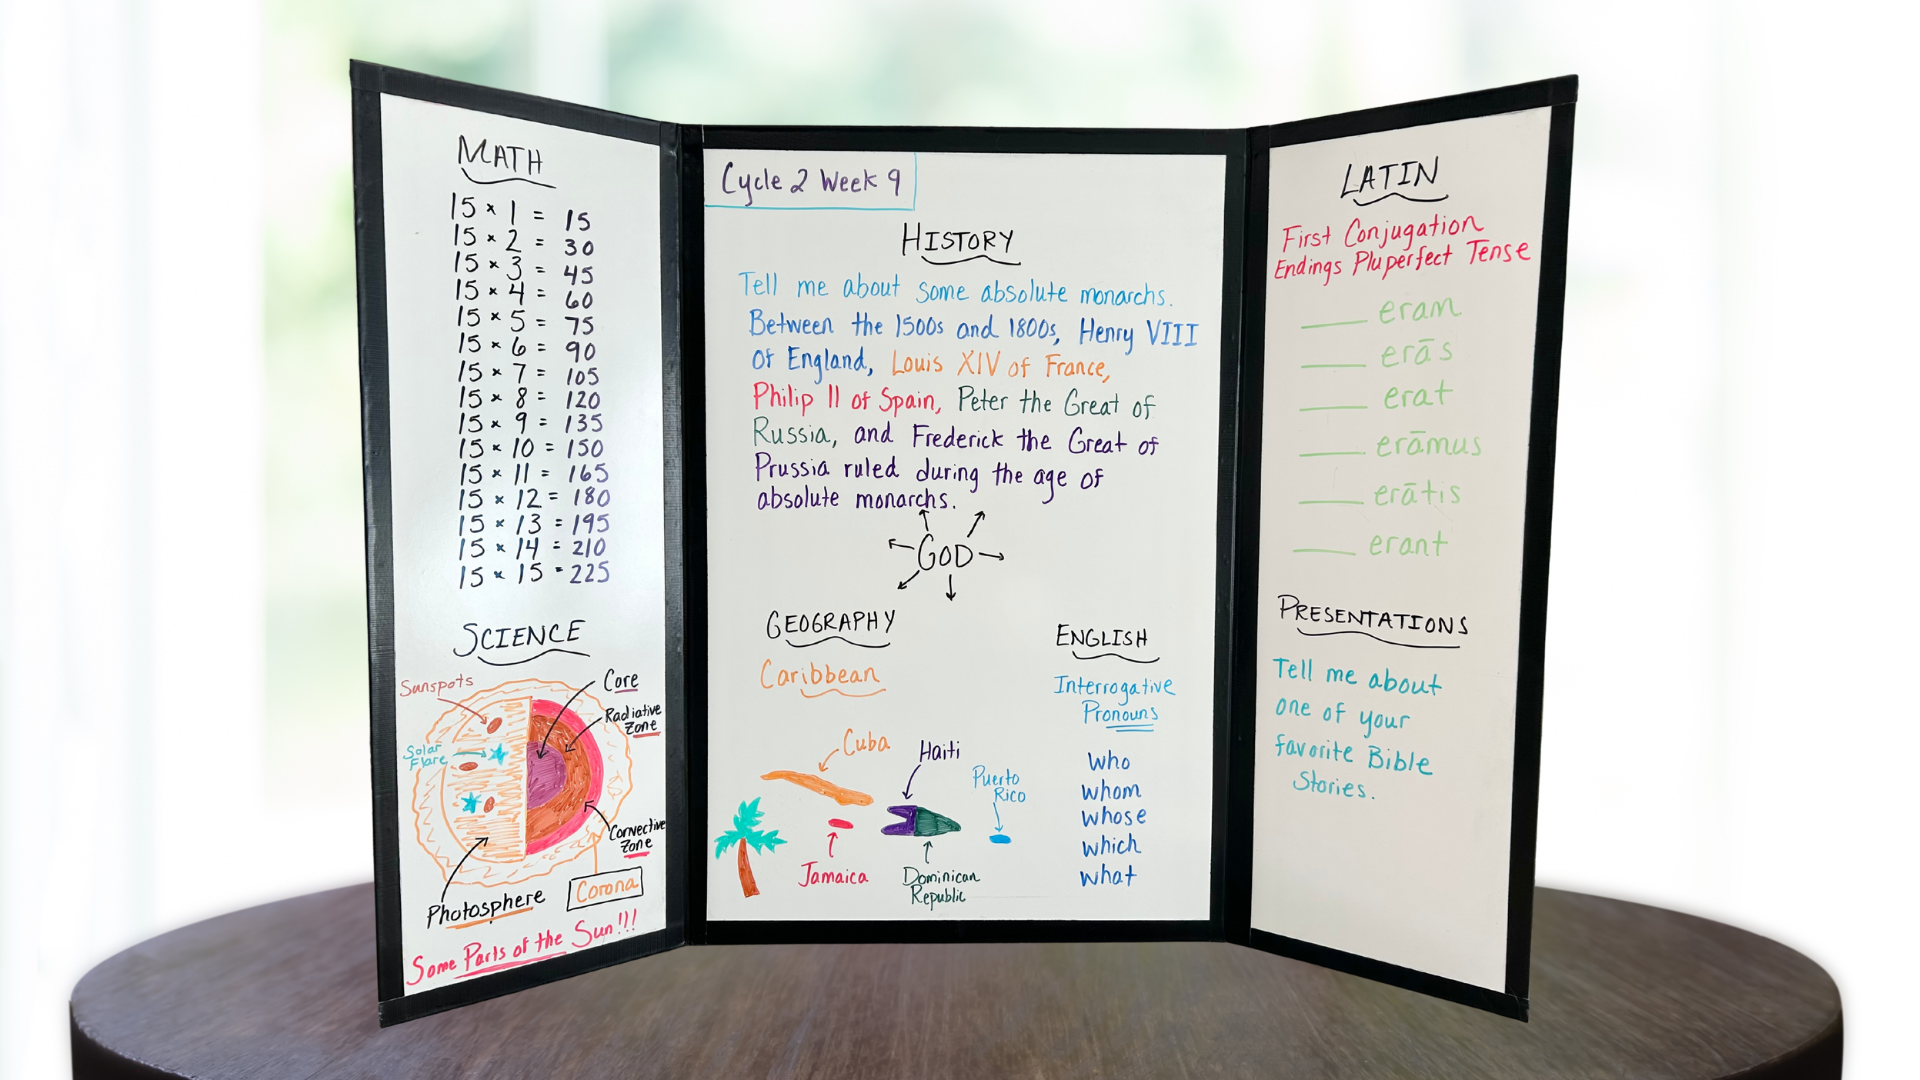 MATH
15 × 1 = 15
15 × 2 = 30
15 × 3 = 45
15 × 4 = 60
15 × 5 = 75
15 × 6 = 90
15 × 7 = 105
15 × 8 = 120
15 × 9 = 135
15 × 10 = 150
15 × 11 = 165
15 × 12 = 180
15 × 13 = 195
15 × 14 = 210
15 × 15 = 225
SCIENCE
Sunspots
Core
Radiative
Zone
Solar
Flare
Convective
Zone
Photosphere
Corona
Some Parts of the Sun!!!
Cycle 2 Week 9
HISTORY
Tell me about some absolute monarchs.
Between the 1500s and 1800s, Henry VIII
of England, Louis XIV of France,
Philip II of Spain, Peter the Great of
Russia, and Frederick the Great of
Prussia ruled during the age of
absolute monarchs.
GOD
GEOGRAPHY
Caribbean
Cuba
Haiti
Puerto
Rico
Jamaica
Dominican
Republic
ENGLISH
Interrogative
Pronouns
who
whom
whose
which
what
LATIN
First Conjugation
Endings Pluperfect Tense
____ eram
____ erās
____ erat
____ erāmus
____ erātis
____ erant
PRESENTATIONS
Tell me about
one of your
favorite Bible
Stories.